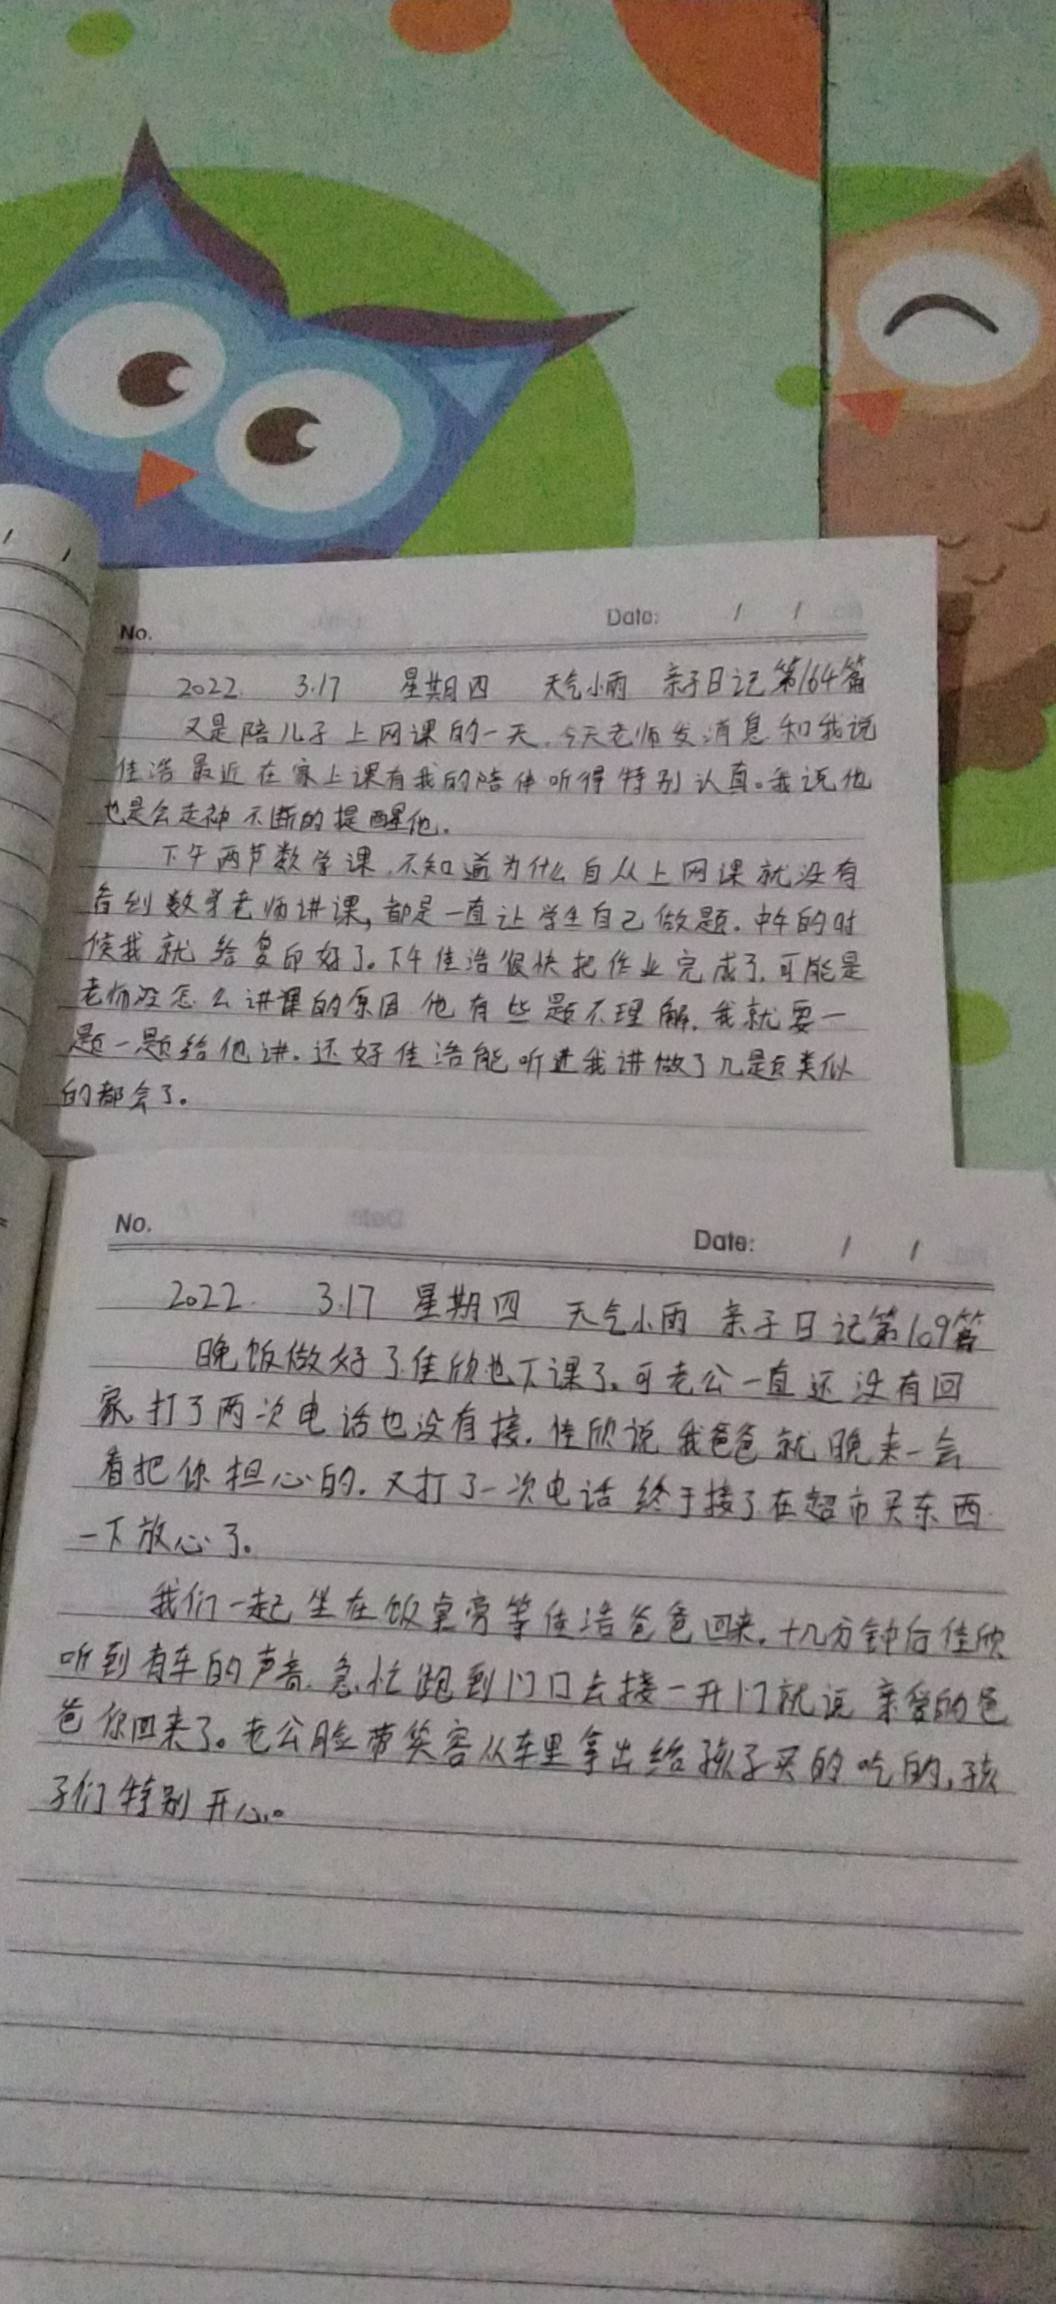 No.
Date: / /
2022. 3.17 星期四 天气小雨 亲子日记第164篇
又是陪儿子上网课的一天,今天老师发消息和我说
佳浩最近在家上课有我的陪伴听得特别认真。我说他
也是会走神不断的提醒他。
下午两节数学课,不知道为什么自从上网课就没有
看到数学老师讲课,都是一直让学生自己做题。中午的时
候我就给复印好了。下午佳浩很快把作业完成了,可能是
老师没怎么讲课的原因他有些题不理解,我就要一
题一题给他讲。还好佳浩能听进我讲做了几题类似
的都会了。
No.
Date: / /
2022. 3.17 星期四 天气小雨 亲子日记第169篇
晚饭做好了佳欣也下课了。可老公一直还没有回
家,打了两次电话也没有接。佳欣说我爸爸就晚来一会
看把你担心的。又打了一次电话终于接了在超市买东西
一下放心了。
我们一起坐在饭桌旁等佳浩爸爸回来,十几分钟后佳欣
听到有车的声音,急忙跑到门口去接一开门就说亲爱的爸
爸你回来了。老公脸带笑容从车里拿出给孩子买的吃的,孩
子们特别开心。